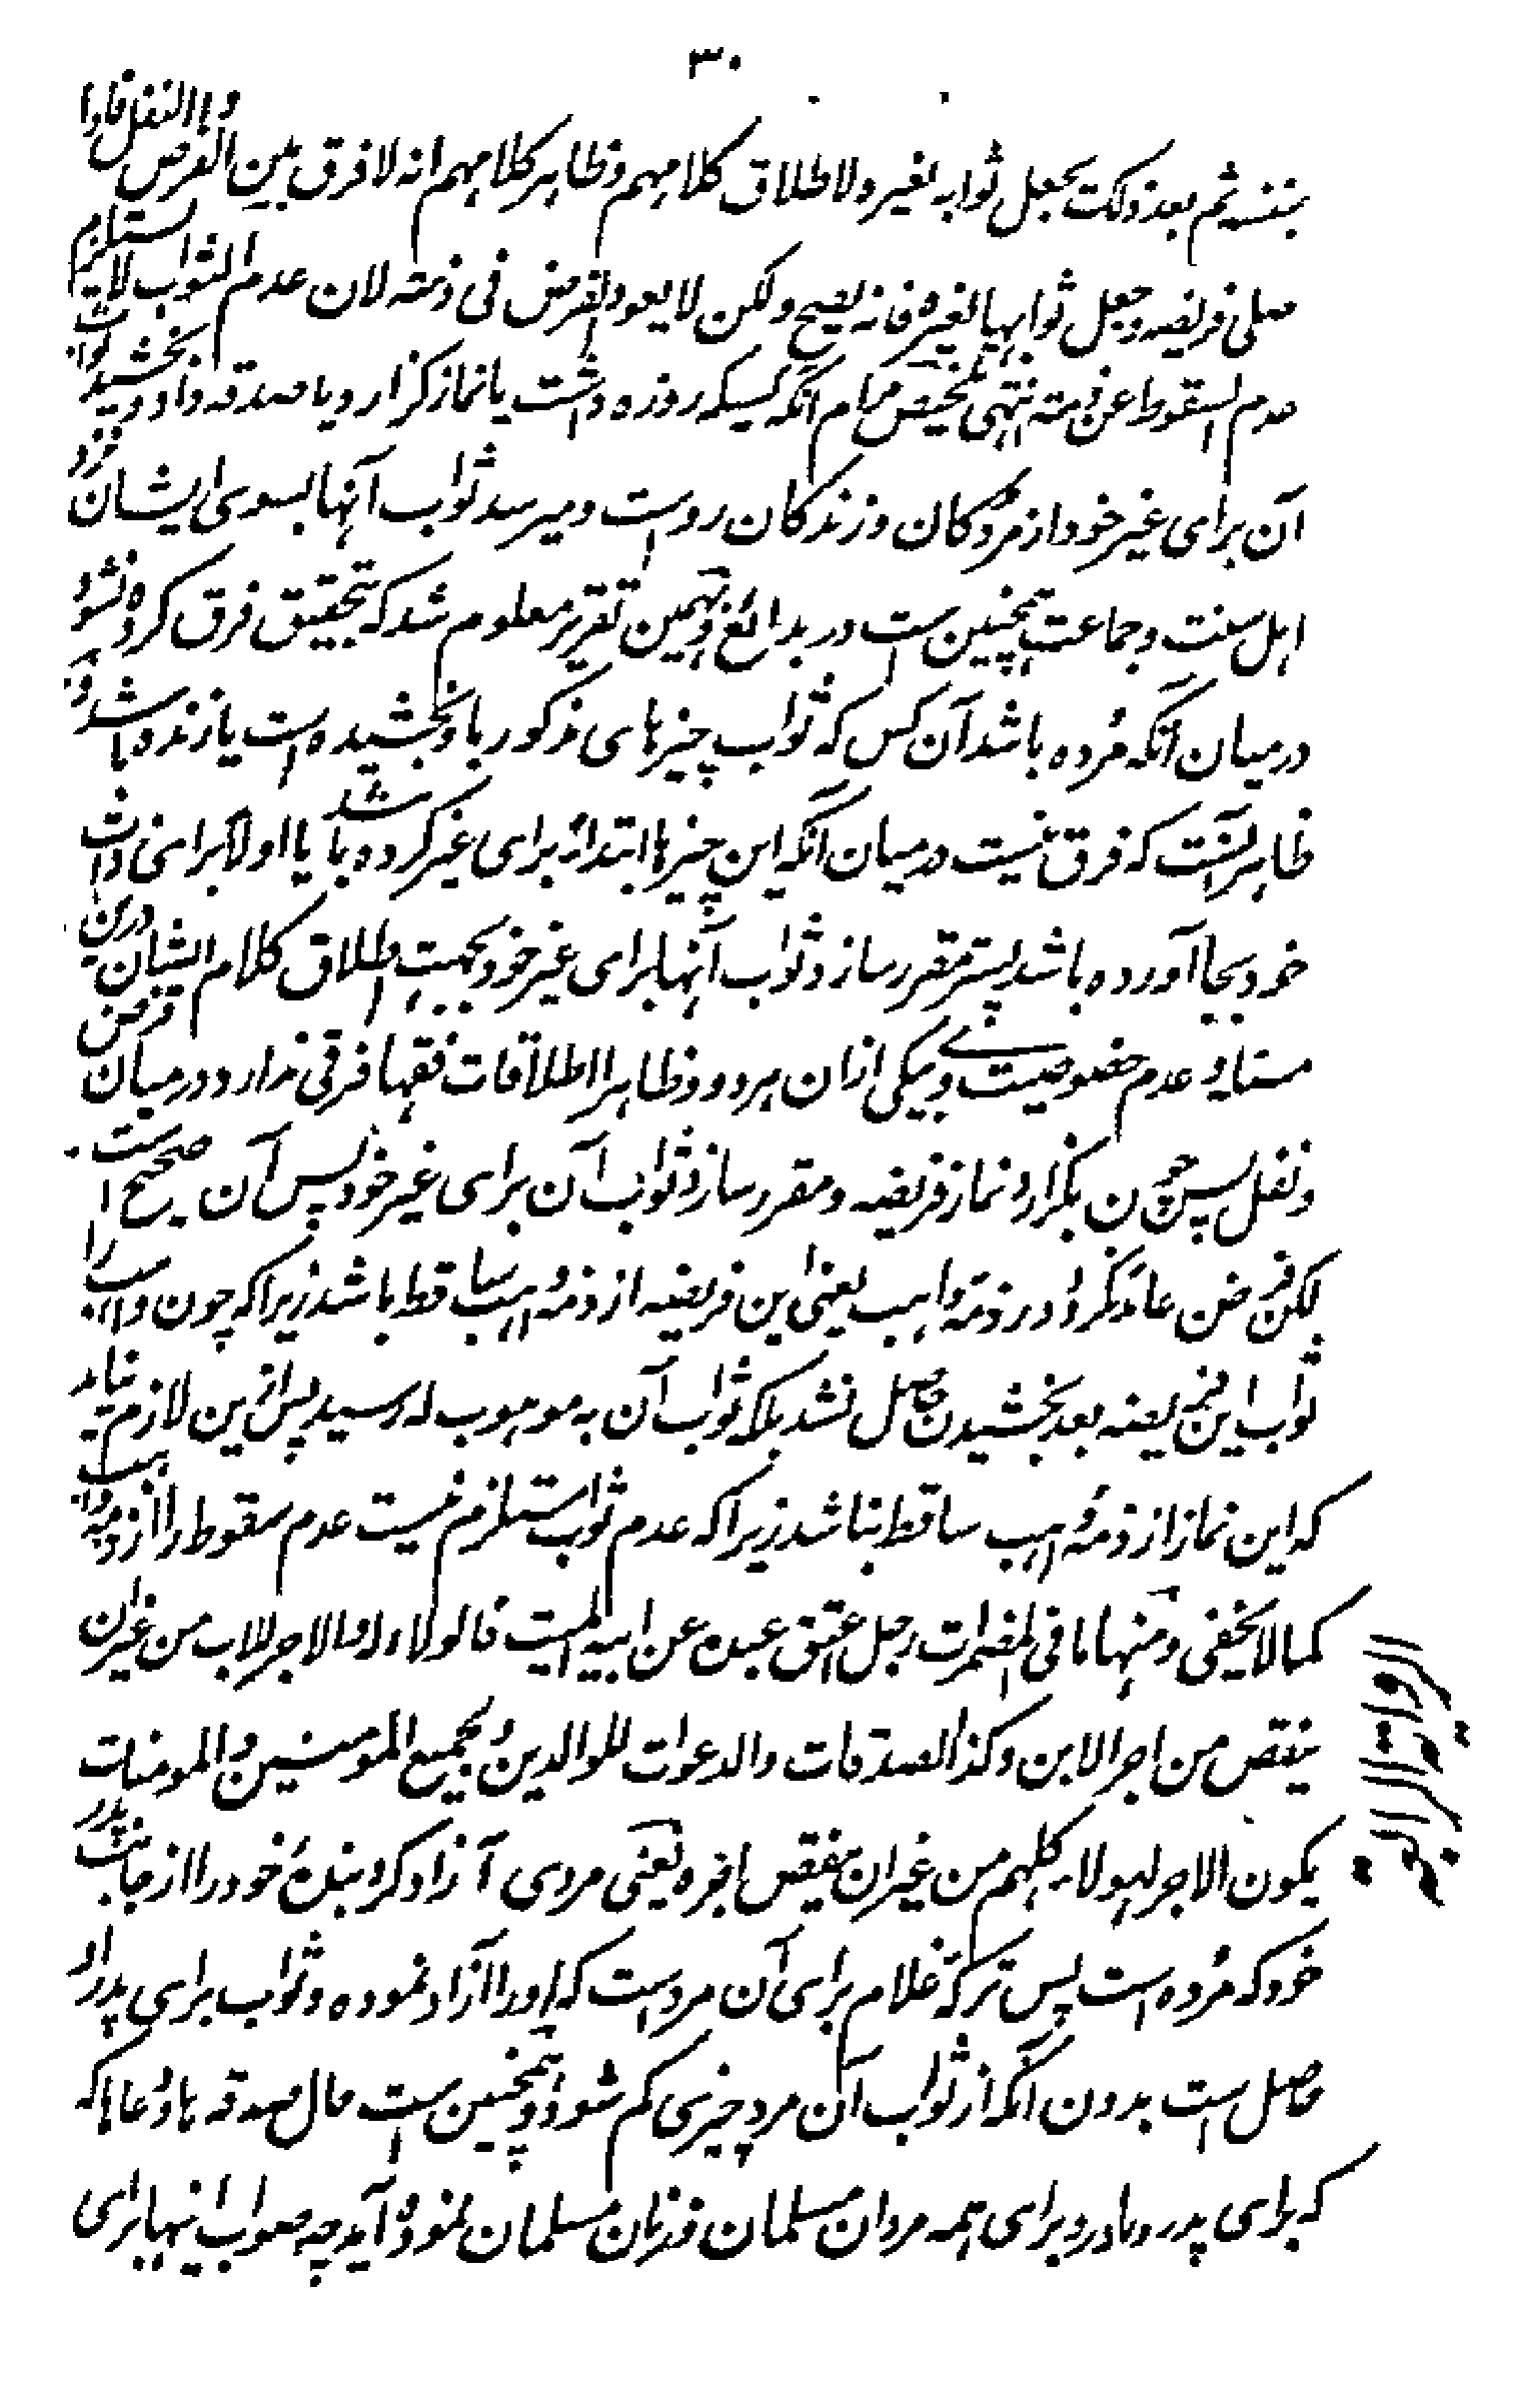 ۳۰
لنفسه ثم بعد ذلک یجعل ثوابه لغیره لاطلاق کلامهم و ظاهر کلامهم انه لا فرق بین الفرض و النفل فاذا
صلی فریضه و جعل ثوابها لغیره فانه یصح ولکن لا یعود الفرض فی ذمته لان عدم الثواب لا یستلزم
عدم السقوط عن ذمته انتهی تلخیص مرام آنکه کسیکه روزه داشت یا نماز گزارد یا صدقه داد و بخشید ثواب
آن برای غیر خود از مردگان و زندگان رواست و میرسد ثواب آنها بسوی ایشان نزد
اهل سنت و جماعت همچنین ست در بدائع و بهمین تقریر معلوم شد که بتحقیق فرق کرده نشود
درمیان آنکه مُرده باشد آن کس که ثواب چیزهای مذکور باو بخشیده است یا زنده باشد و
ظاهر آنست که فرق نیست درمیان آنکه این چیزها ابتداءً برای غیر کرده باشد یا اولاً برای ذات
خود بجا آورده باشد پستر مقرر سازد ثواب آنها برای غیر خود بجهت اطلاق کلام ایشان درین
مسئله و عدم خصوصیت و یکی ازان هر دو و ظاهرا اطلاقات فقها فرقی ندارد درمیان فرض
و نفل پس چون بگزارد نماز فریضه و مقرر سازد ثواب آن برای غیر خود پس آن صحیح است
لکن فرض عائد نگردد در ذمهٔ واهب یعنی این فریضه از ذمهٔ واهب ساقط باشد زیرا که چون واهب را
ثواب این فریضه بعد بخشیدن حاصل نشد بلکه ثواب آن به موهوب له رسید پس ازین لازم نیاید
که این نماز از ذمهٔ واهب ساقط نباشد زیرا که عدم ثواب مستلزم نیست عدم سقوط را از ذمهٔ واهب
کما لا یخفی و منها ما فی المضمرات رجل اعتق عبده عن ابیه المیت فالولاء له و الاجر للاب من غیر ان
ینقص من اجر الابن و کذا الصدقات و الدعوات للوالدین و لجمیع المومنین و المومنات
یکون الاجر لهولاء کلهم من غیر ان ینقص اجره یعنی مردی آزاد کرد بندهٔ خود را از جانب پدر
خود که مُرده است پس ترکهٔ غلام برای آن مرد است که او را آزاد نموده و ثواب برای پدر او
حاصل است بدون آنکه از ثواب آن مرد چیزی کم شود و همچنین ست حال صدقه ها و دعاها که
که برای پدر و مادر و برای همه مردان مسلمان و زنان مسلمان نموده آید چه ثواب اینها برای